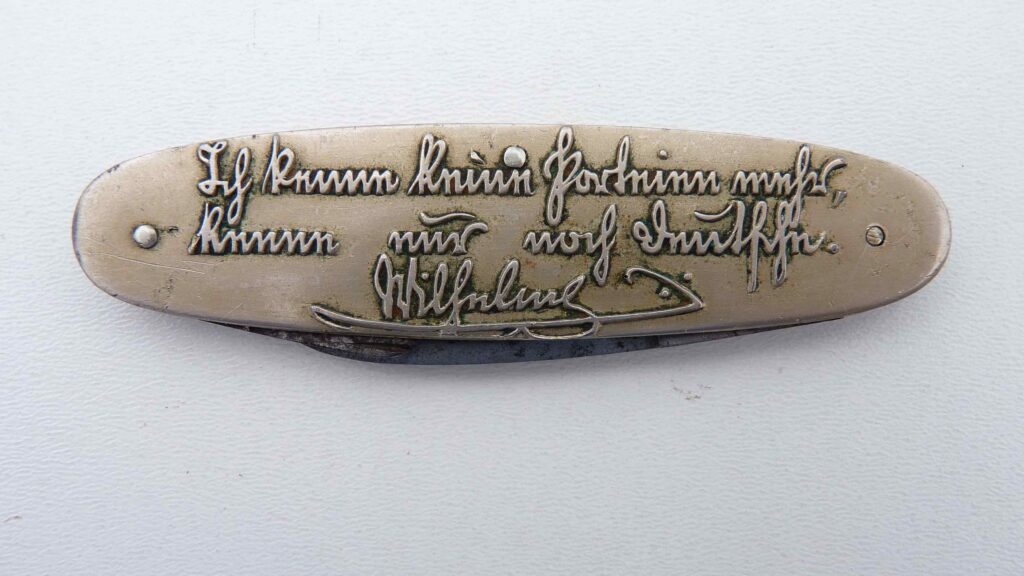 Ich kenne keine Parteien mehr,
kenne nur noch Deutsche.
Wilhelm